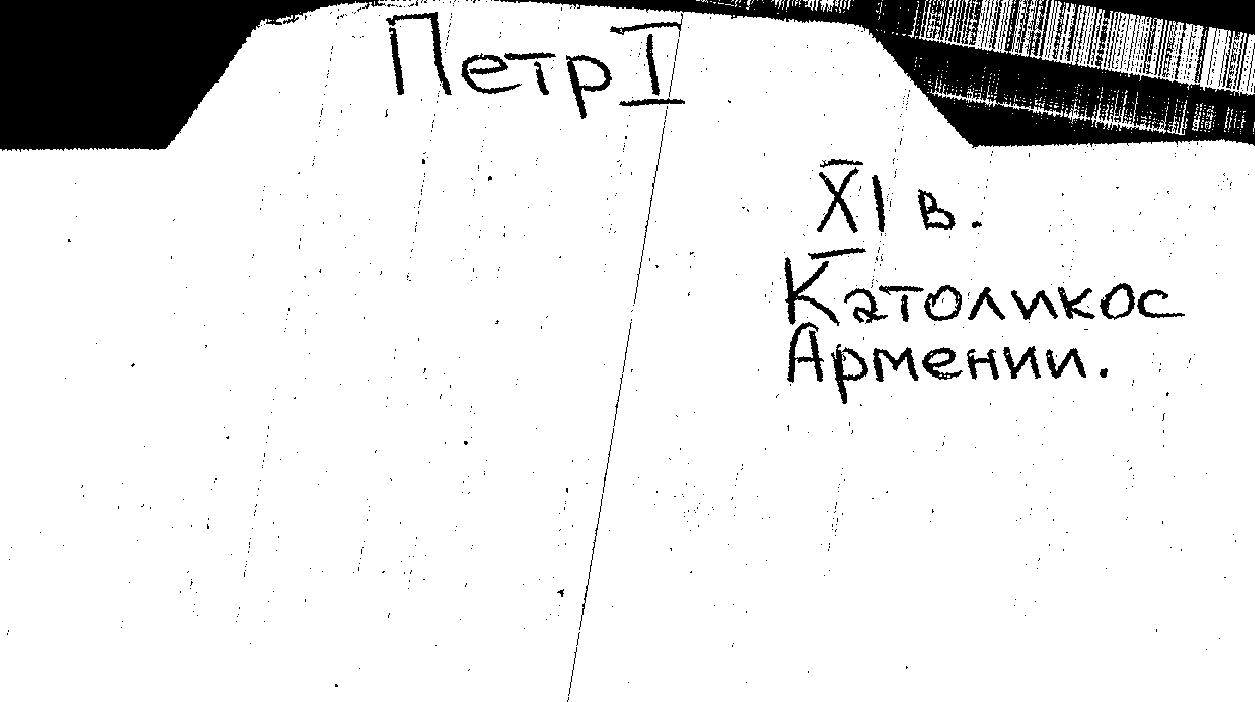 Петр I
XI в.
Католикос
Армении.